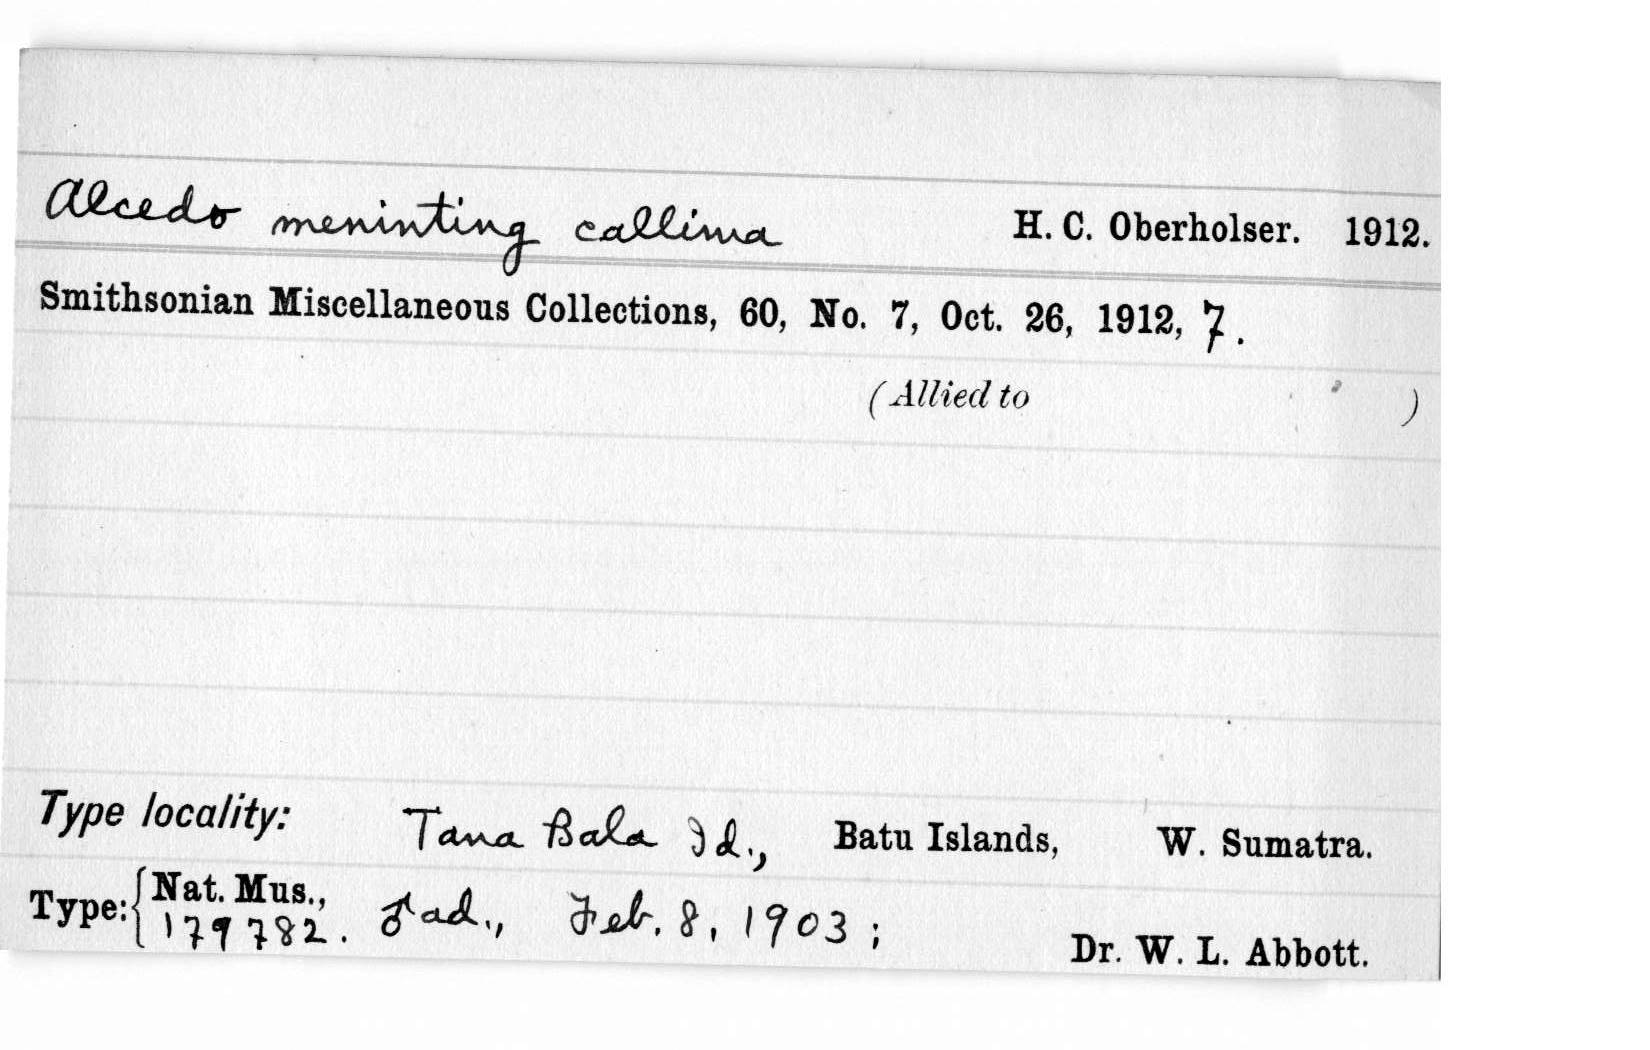 Alcedo meninting callima H. C. Oberholser. 1912.
Smithsonian Miscellaneous Collections, 60, No. 7, Oct. 26, 1912, 7.
(Allied to )
Type locality: Tana Bala Id., Batu Islands, W. Sumatra.
Type: { Nat. Mus.,
179782. ♂ ad., Feb. 8, 1903; Dr. W. L. Abbott.